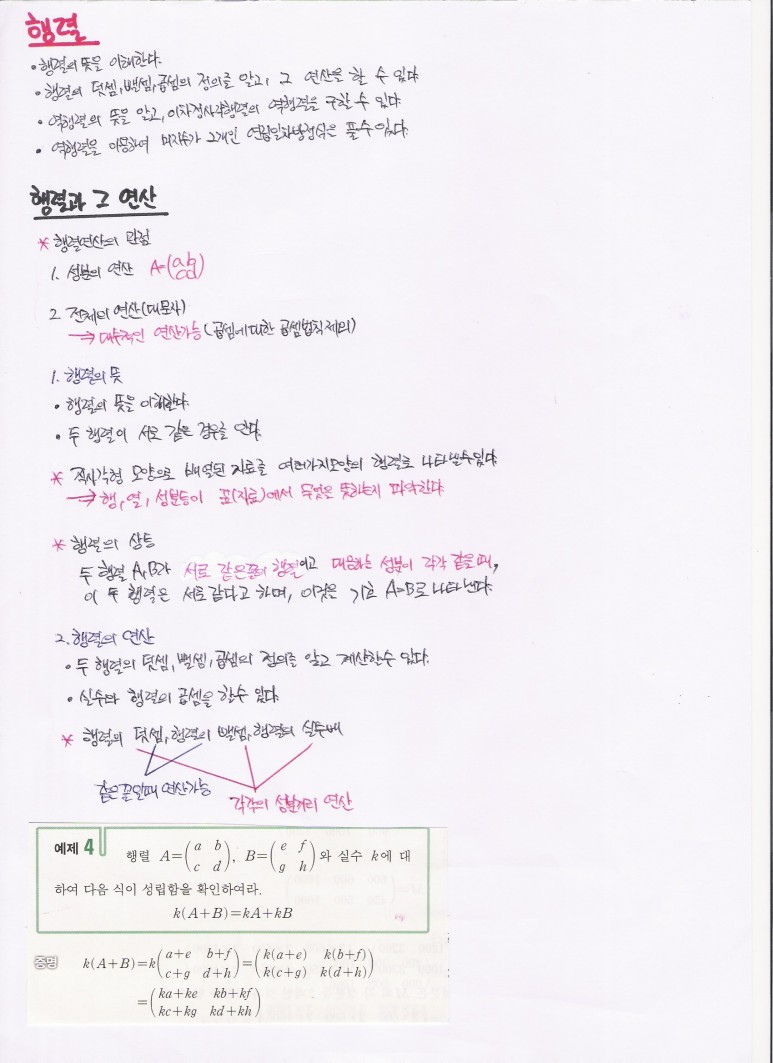 행렬
• 행렬의 뜻을 이해한다.
• 행렬의 덧셈, 뺄셈, 곱셈의 정의를 알고, 그 연산을 할 수 있다
• 역행렬의 뜻을 알고, 이차정사각행렬의 역행렬을 구할 수 있다
• 역행렬을 이용하여 미지수가 2개인 연립일차방정식을 풀 수 있다.
행렬과 그 연산
* 행렬연산의 관점
1. 성분의 연산 A=(a b
c d)
2. 전체의 연산(대문자)
→ 대수적인 연산가능 (곱셈에 대한 곱셈법칙 제외)
1. 행렬의 뜻
• 행렬의 뜻을 이해한다.
• 두 행렬이 서로 같은 경우를 안다.
* 직사각형 모양으로 배열된 자료를 여러가지모양의 행렬로 나타낼수있다
→ 행, 열, 성분등이 표(자료)에서 무엇을 뜻하는지 파악한다.
* 행렬의 상등
두 행렬 A, B가 서로 같은꼴의 행렬이고 대응하는 성분이 각각 같을 때,
이 두 행렬은 서로 같다고 하며, 이것은 기호 A=B로 나타낸다.
2. 행렬의 연산
• 두 행렬의 덧셈, 뺄셈, 곱셈의 정의를 알고 계산할수 있다.
• 실수와 행렬의 곱셈을 할수 있다
* 행렬의 덧셈, 행렬의 뺄셈, 행렬의 실수배
같은꼴일때 연산가능
각각의 성분끼리 연산
예제 4 행렬 A=(a b
c d), B=(e f
g h)와 실수 k에 대
하여 다음 식이 성립함을 확인하여라.
k(A+B)=kA+kB
증명 k(A+B)=k(a+e b+f
c+g d+h)=(k(a+e) k(b+f)
k(c+g) k(d+h))
=(ka+ke kb+kf
kc+kg kd+kh)